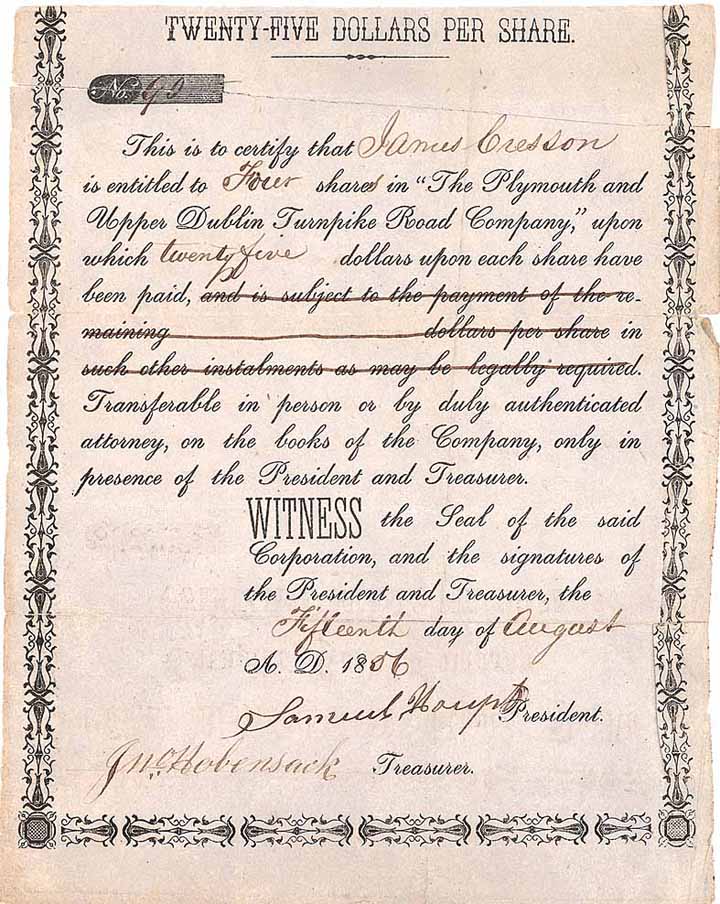 TWENTY-FIVE DOLLARS PER SHARE.
No. 90
This is to certify that James Cresson
is entitled to Four shares in "The Plymouth and
Upper Dublin Turnpike Road Company," upon
which twenty five dollars upon each share have
been paid, and is subject to the payment of the re-
maining dollars per share in
such other instalments as may be legally required.
Transferable in person or by duly authenticated
attorney, on the books of the Company, only in
presence of the President and Treasurer.
WITNESS the Seal of the said
Corporation, and the signatures of
the President and Treasurer, the
Fifteenth day of August
A. D. 1856
Samuel Houpt President.
Jno. Hobensack Treasurer.